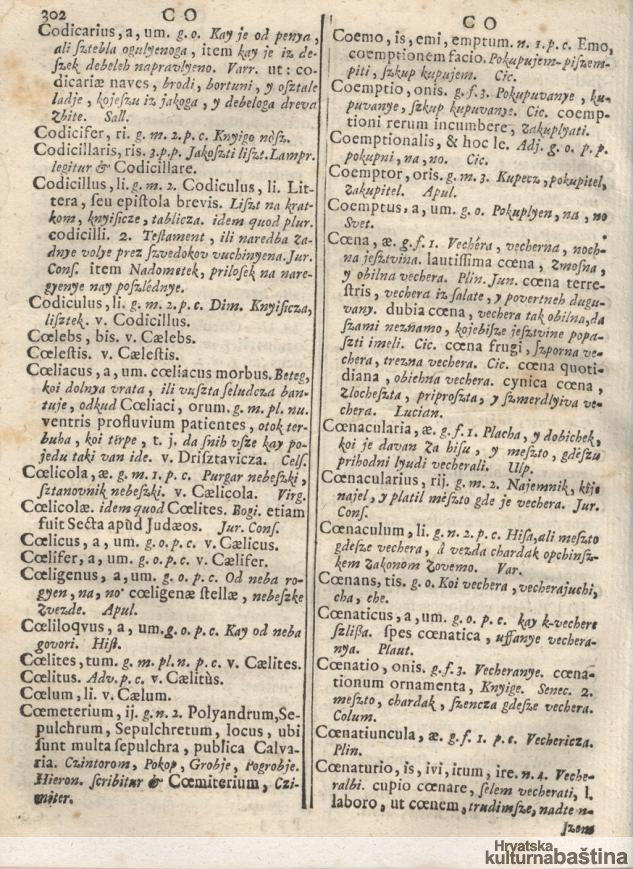 302 C O
Codicarius, a, um. g. o. Kay je od penya,
ali ſztebla ogulyenoga, item kay je iz de-
ſzek debeleh napravlyeno. Varr. ut: co-
dicariæ naves, brodi, bortuni, y oſztale
ladje, kojeszu iz jakoga, y debeloga dreva
Zbite. Sall.
Codicifer, ri. g. m. 2. p. c. Knyigo nòſz.
Codicillaris, ris. 3. p. p. Jakoſzti liſzt. Lampr.
legitur & Codicillare.
Codicillus, li. g. m. 2. Codiculus, li. Lit-
tera, ſeu epiſtola brevis. Liſzt na krat-
kom, knyiſicze, tablicza. idem quod plur.
codicilli. 2. Teſtament, ili naredba Za-
dnye volye prez ſzvedokov vuchinyena. Jur.
Conſ. item Nadometek, priloſek na nare-
gyenye nay poſzlèdnye.
Codiculus, li. g. m. 2. p. c. Dim. Knyiſicza,
liſztek. v. Codicillus.
Cœlebs, bis. v. Cælebs.
Cœleſtis. v. Cæleſtis.
Cœliacus, a, um. cœliacus morbus. Beteg,
koi dolnya vrata, ili vuſzta ſeludcza ban-
tuje, odkud Cœliaci, orum. g. m. pl. nu.
ventris profluvium patientes, otok ter-
buha, koi tèrpe, t. j. da ſnih vſze kay po-
jedu taki van ide. v. Driſztavicza. Celſ.
Cœlicola, æ. g. m. 1. p. c. Purgar nebeſzki,
ſztanovnik nebeſzki. v. Cælicola. Virg.
Cœlicolæ. idem quod Cœlites. Bogi. etiam
fuit Secta apùd Judæos. Jur. Conſ.
Cœlicus, a, um. g. o. p. c. v. Cælicus.
Cœlifer, a, um. g. o. p. c. v. Cælifer.
Cœligenus, a, um. g. o. p. c. Od neba ro-
gyen, na, no. cœligenæ ſtellæ, nebeſzke
Zvezde. Apul.
Cœliloqvus, a, um. g. o. p. c. Kay od neba
govori. Hiſt.
Cœlites, tum. g. m. pl. n. p. c. v. Cælites.
Cœlitus. Adv. p. c. v. Cælitùs.
Cœlum, li. v. Cælum.
Cœmeterium, ij. g. n. 2. Polyandrum, Se-
pulchrum, Sepulchretum, locus, ubi
ſunt multa ſepulchra, publica Calva-
ria. Czintorom, Pokop, Grobje, Pogrobje.
Hieron. ſcribitur & Cœmiterium, Czi-
miter.
C O
Coemo, is, emi, emptum. n. 1. p. c. Emo,
coemptionem facio. Pokupujem-piſzem-
piti, ſzkup kupujem. Cic.
Coemptio, onis. g. f. 3. Pokupuvanye, ku-
puvanye, ſzkup kupuvanye. Cic. coemp-
tioni rerum incumbere, Zakuplyati.
Coemptionalis, & hoc le. Adj. g. o. p. p.
pokupni, na, no. Cic.
Coemptor, oris. g. m. 3. Kupecz, pokupitel,
Zakupitel. Apul.
Coemptus, a, um. g. o. Pokuplyen, na, no
Svet.
Cœna, æ. g. f. 1. Vechèra, vecherna, noch-
na jeſztvina. lautiſſima cœna, Zmoſna,
y obilna vechera. Plin. Jun. cœna terre-
ſtris, vechera iz ſalate, y povertneh dugu-
vany. dubia cœna, vechera tak obilna, da
ſzami neznamo, kojebiſze jeſztvine popa-
ſzti imeli. Cic. cœna frugi, ſzporna ve-
chera, trezna vechera. Cic. cœna quoti-
diana, obiehna vechera. cynica cœna,
Zlocheſzta, priproſzta, y ſzmerdlyiva ve-
chera. Lucian.
Cœnacularia, æ. g. f. 1. Placha, y dobichek,
koi je davan Za hiſu, y meſzto, gdèſzu
prihodni lyudi vecherali. Ulp.
Cœnacularius, rij. g. m. 2. Najemnik, koi je
najel, y platil mèſzto gde je vechera. Jur.
Conſ.
Cœnaculum, li. g. n. 2. p. c. Hiſa, ali meſzto
gdeſze vechera, à vezda chardak opchinſz-
kem Zakonom Zovemo. Var.
Cœnans, tis. g. o. Koi vechera, vecherajuchi,
cha, che.
Cœnaticus, a, um. g. o. p. c. kay k-vechere
ſzliſſa. ſpes cœnatica, uffanye vechera-
nya. Plaut.
Cœnatio, onis. g. f. 3. Vecheranye. cœna-
tionum ornamenta, Knyige. Senec. 2.
meſzto, chardak, ſzencza gdeſze vechera.
Colum.
Cœnatiuncula, æ. g. f. 1. p. c. Vechericza.
Plin.
Cœnaturio, is, ivi, itum, ire. n. 4. Veche-
ralbi. cupio cœnare, ſelem vecherati, l.
laboro, ut cœnem, trudimſze, nadte n-
ſzem
Hrvatska
kulturnabaština